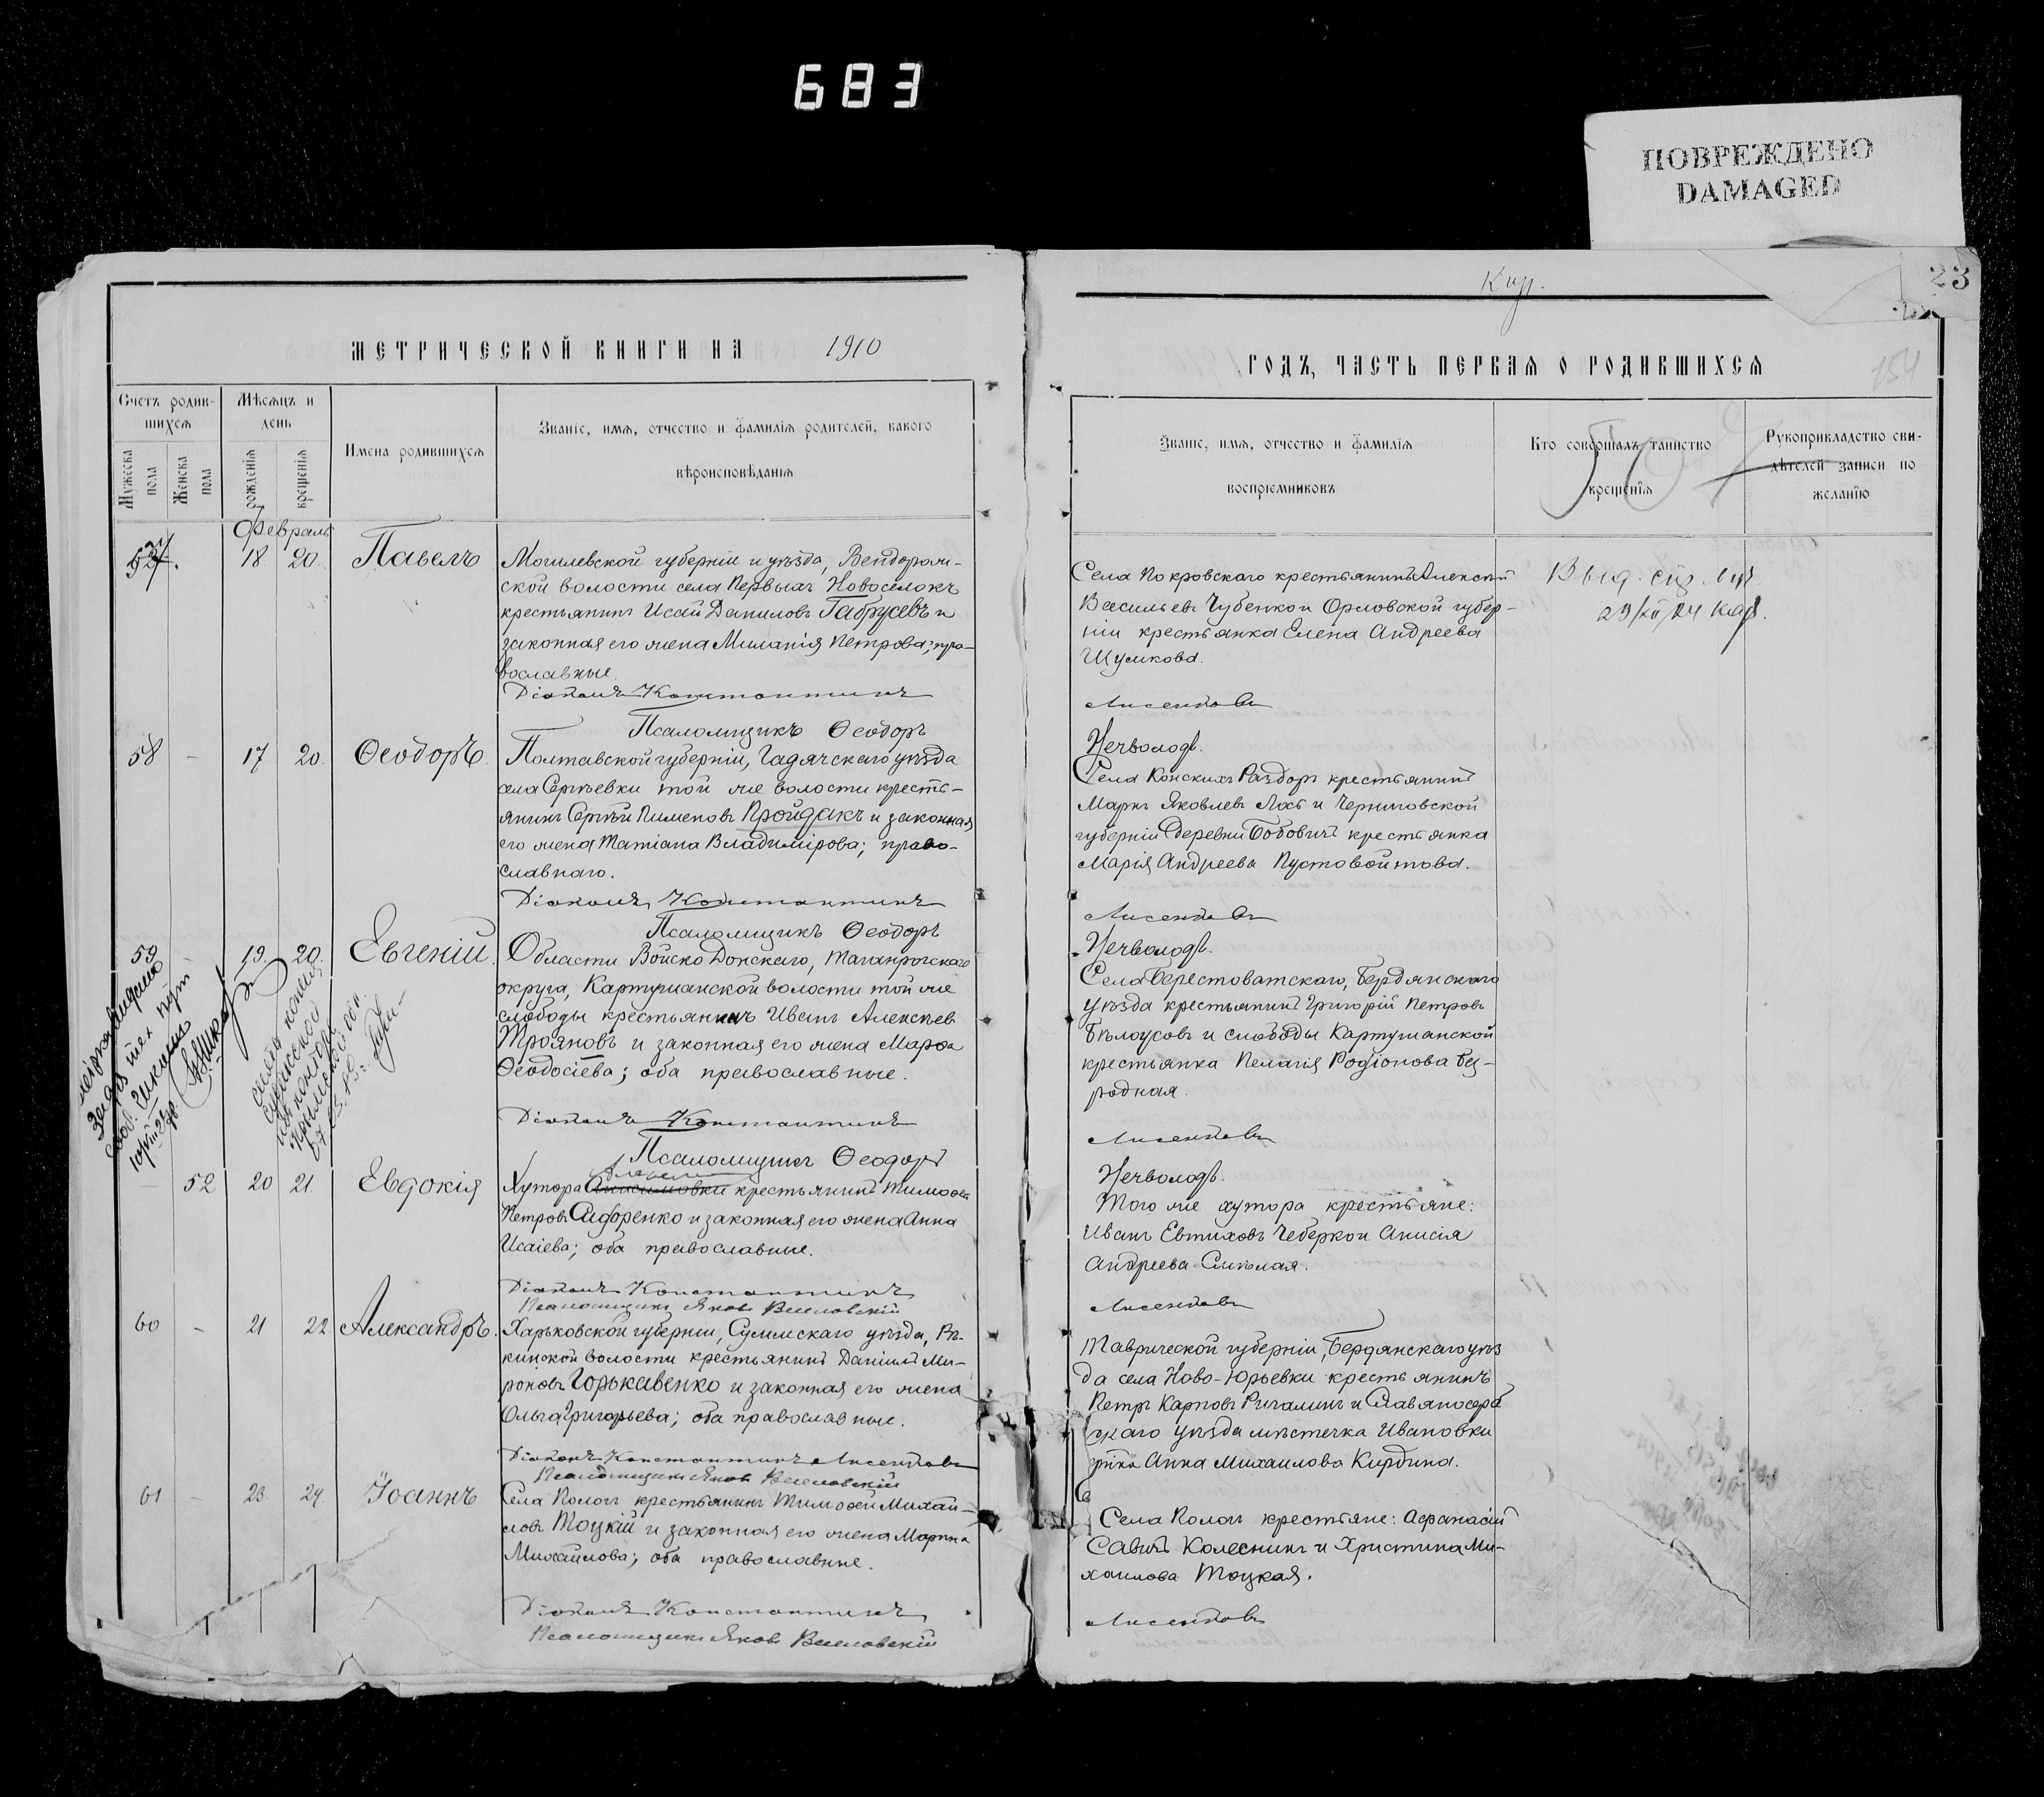 683
ПОВРЕЖДЕНО
DAMAGED
23
МЕТРИЧЕСКОЙ КНИГИ НА 1910
Счетъ родив-
шихся
Мѣсяцъ и
день
Мужеска
пола
Женска
пола
рожденія
крещенія
Имена родившихся
Званіе, имя, отчество и фамилія родителей, какого
вѣроисповѣданія
Февраль
57. 18 20. Павелъ
Могилевской губерніи и уѣзда, Вендорож-
ской волости села Первыхъ Новоселокъ
крестьянинъ Исай Даниловъ Габрусевъ и
законная его жена Миланія Петрова; пра-
вославные.
Діаконъ Константинъ
Псаломщикъ Ѳеодоръ
58 - 17 20. Ѳеодоръ.
Полтавской губерніи, Гадячскаго уѣзда
села Сергѣевки той же волости кресть-
янинъ Сергѣй Пименовъ Пройдакъ и законная
его жена Татіана Владимірова; право-
славнаго.
Діаконъ Константинъ
Псаломщикъ Ѳеодоръ
59 - 19. 20. Евгеній.
Области Войско Донскаго, Таганрогскаго
округа, Картушанской волости той же
слободы крестьянинъ Иванъ Алексѣевъ
Трояновъ и законная его жена Марѳа
Ѳеодосіева; оба православные.
Діаконъ Константинъ
Псаломщикъ Ѳеодоръ
- 52 20 21. Евдокія
Хутора Анисимовки крестьянинъ Тимоѳей
Петровъ Сидоренко и законная его жена Анна
Исаіева; оба православные.
Діаконъ Константинъ
Псаломщикъ Яковъ
60 - 21 22. Александръ.
Харьковской губерніи, Сумскаго уѣзда, Рѣ-
кинской волости крестьянинъ Даніилъ Ми-
роновъ Горькавенко и законная его жена
Ольга Григорьева; оба православные.
Діаконъ Константинъ Лисенковъ
Псаломщикъ Яковъ
61 - 23. 24. Іоаннъ
Села Пологъ крестьянинъ Тимоѳей Михаи-
ловъ Тоцкій и законная его жена Марина
Михаилова; оба православные.
Діаконъ Константинъ
Псаломщикъ Яковъ
ГОДЪ, ЧАСТЬ ПЕРВАЯ О РОДИВШИХСЯ
154
Званіе, имя, отчество и фамилія
воспріемниковъ
Кто совершалъ таинство
крещенія
Рукоприкладство сви-
дѣтелей записи по
желанію
Села Покровскаго крестьянинъ Алексѣй
Васильевъ Чубенко и Орловской губер-
ніи крестьянка Елена Андреева
Шумкова.
Лисенковъ
Нечволодъ.
Села Конскихъ Раздоръ крестьянинъ
Маркъ Яковлевъ Лохъ и Черниговской
губерніи деревни Бобовичъ крестьянка
Марія Андреева Пустовойтова.
Лисенковъ
Нечволодъ.
Села Берестоватскаго, Бердянскаго
уѣзда крестьянинъ Григорій Петровъ
Бѣлоусовъ и слободы Картушанской
крестьянка Пелагія Родіонова Без-
родная.
Лисенковъ
Нечволодъ.
Того же хутора крестьяне:
Иванъ Евтиховъ Чеберко и Анисія
Андреева Смѣлая.
Лисенковъ
Таврической губерніи, Бердянскаго уѣз
да села Ново-Юрьевки крестьянинъ
Петръ Карповъ и Славяносерб
скаго уѣзда мѣстечка Ивановки
Анна Михаилова Кирдина.
Села Пологъ крестьяне: Аѳанасій
Савичъ Колесникъ и Христина Ми-
хаилова Тоцкая.
Лисенковъ